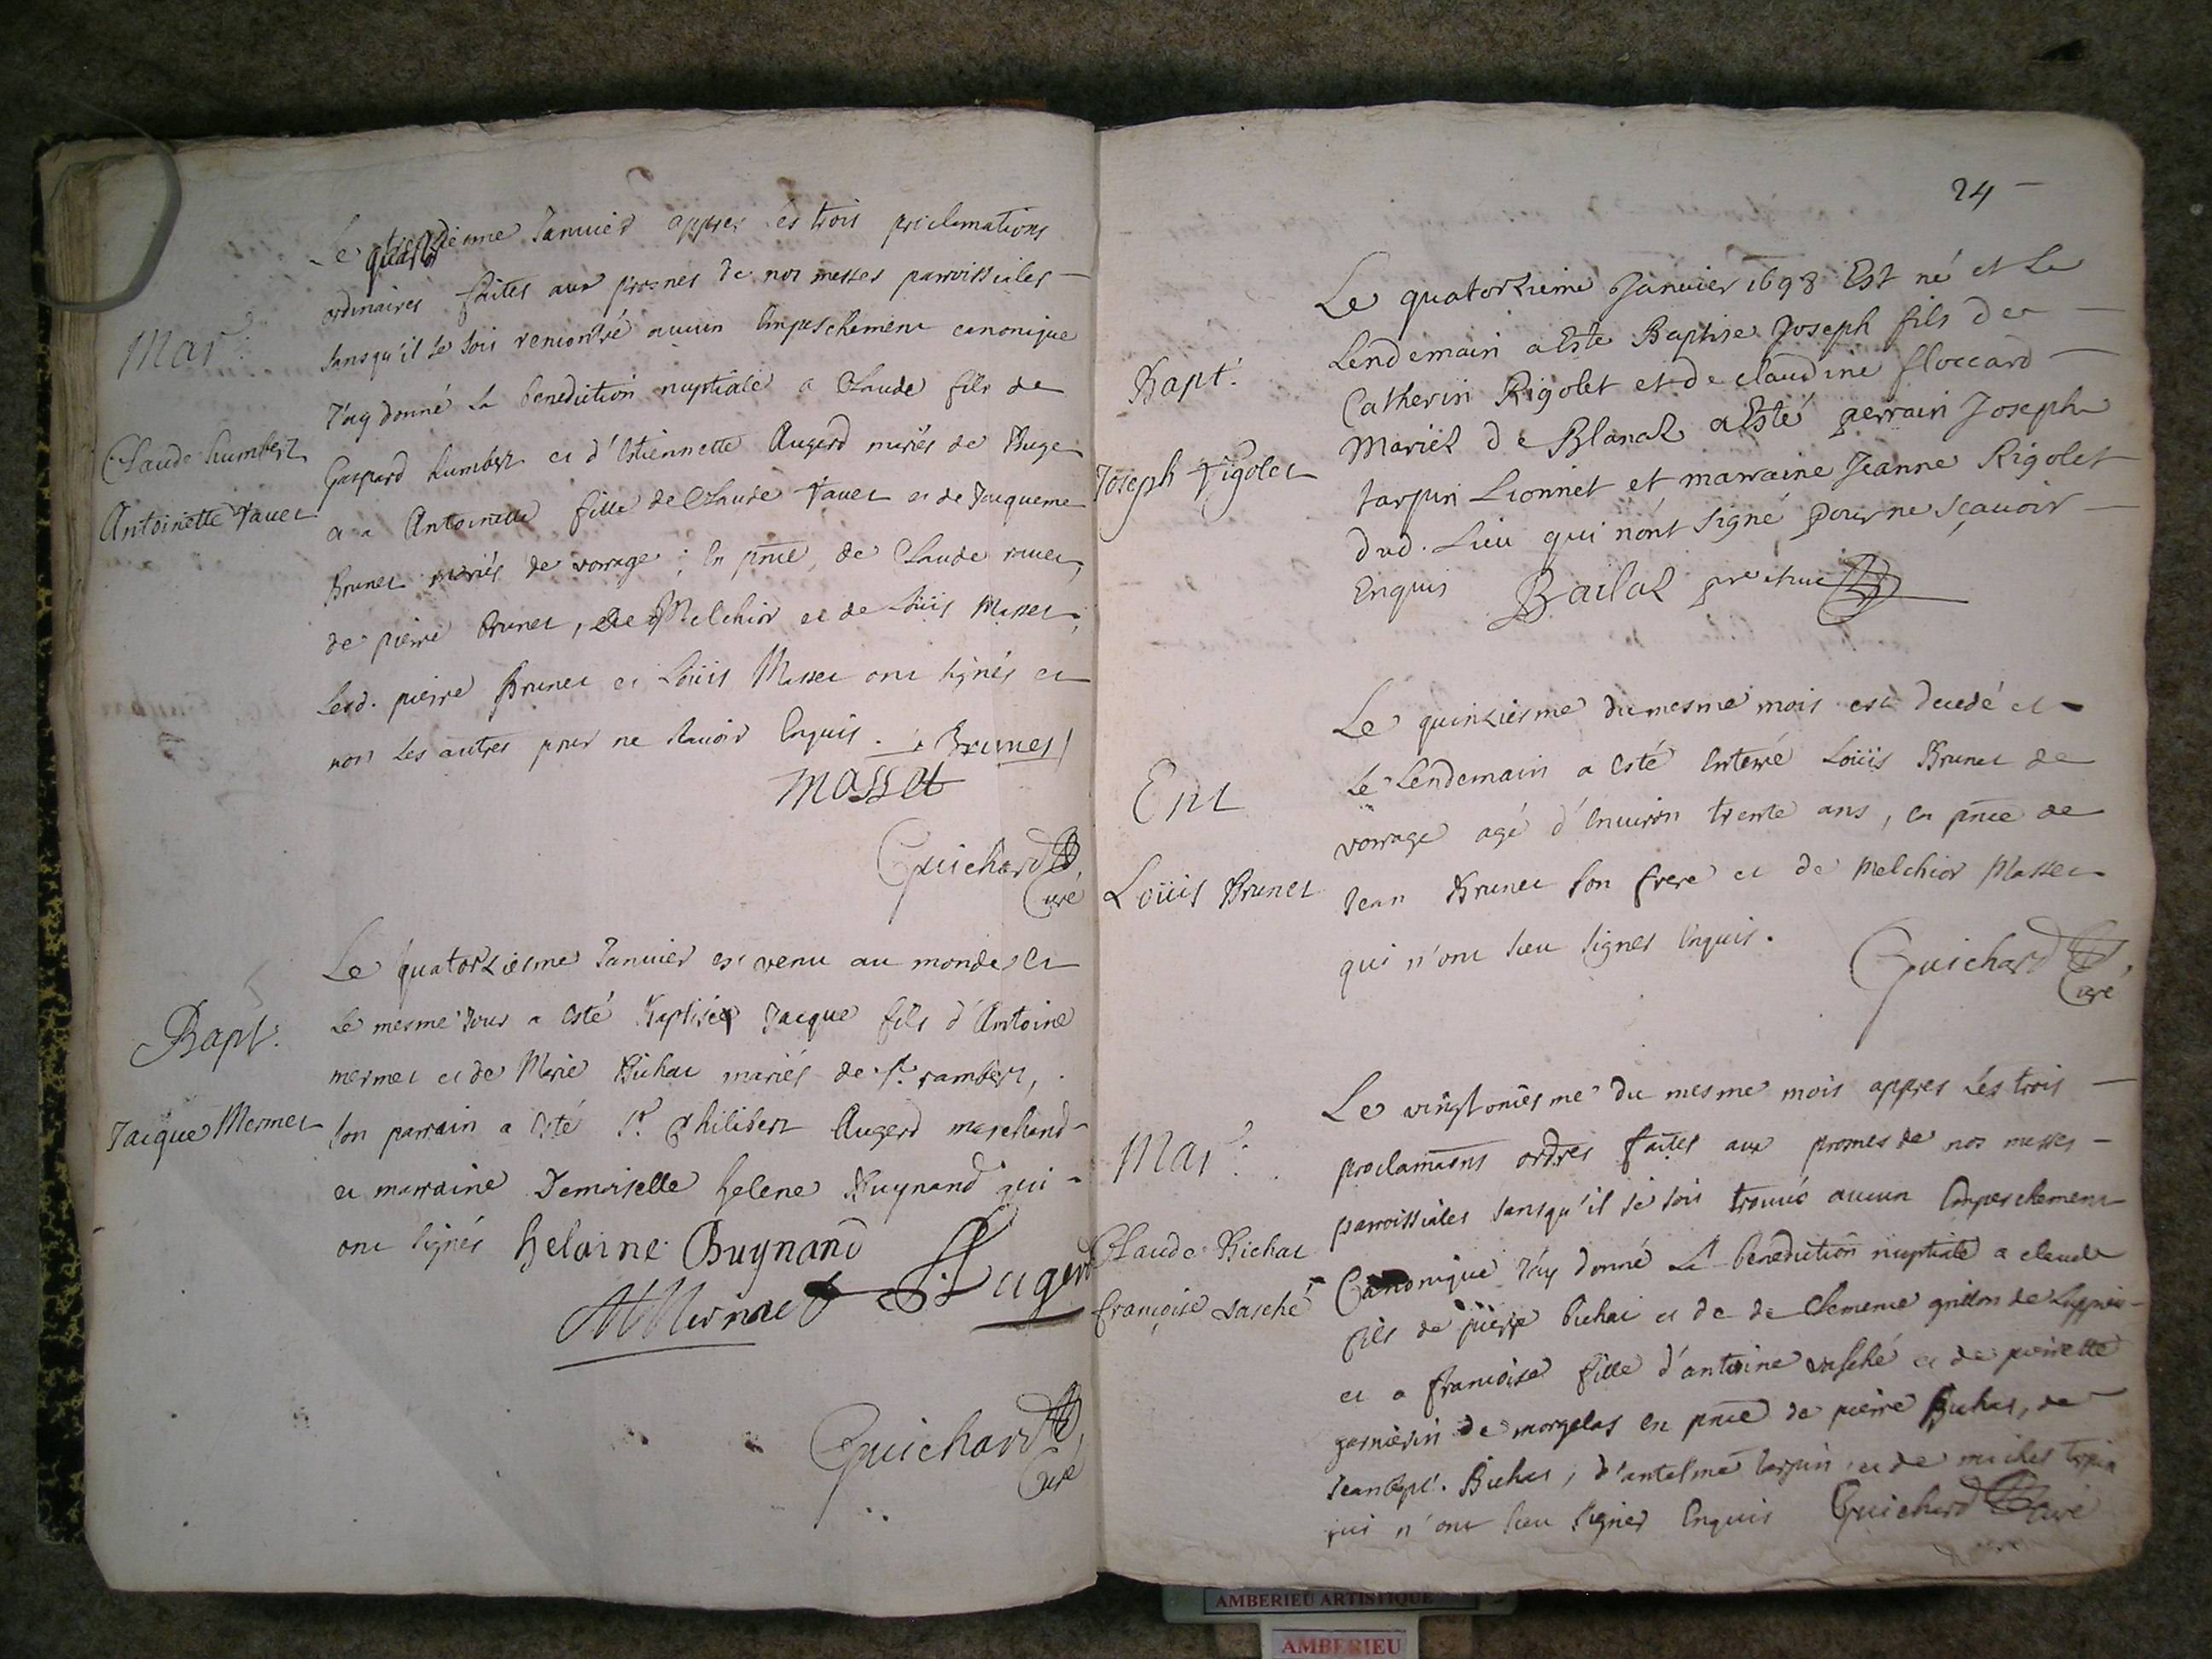 Le treizieme Januier appres les trois proclamations
ordinaires faites aux prosnes de nos messes parroissiales
Mar:
sans qu'il se soit rencontré aucun Empeschement canonique
J'ay donné la benediction nuptiale a Claude fils de
Claude humbert
Gaspard humbert et d'Estiennette Augerd mariés de Buge
Antoinette Vauet
et a Antoinette fille de Claude Vauet et de Jacqueme
Brunet mariés de vorage; En pnce, de Claude vauet,
de pierre Brunet, de Melchior et de Loüis Masset,
Lesd. pierre Brunet et Loüis Masset ont signés et
non Les autres pour ne sauoir Enquis. Brunet
Masset
Guichard
Curé
Le quatorziesme Januier est venu au monde et
Bapt.
Le mesme Jour a esté Baptisé Jacque fils d'Antoine
mermet et de Marie Bichat mariés de St. rambert,
Jacque Mermet
Son parrain a esté Sr. Philibert Augerd marchand
et marraine Demoiselle helene Buynand qui
ont signés helaine Buynand
Mermet Augerd
Guichard
Curé
24
Le quatorzieme Januier 1698 Est né et Le
Lendemain a Este Baptise Joseph fils de
Bapt.
Catherin Rigolet et de claudine floccard
Mariéz de Blanaz a Esté perrain Joseph
Joseph Rigolet
tarpin Lionnet et marraine Jeanne Rigolet
dud. Lieu qui n'ont signé pour ne sçauoir
Enquis Bailaz pre
Le quinziesme du mesme mois est decedé et
Ent
Le Lendemain a esté Enterré Loüis Brunet de
vorage agé d'Enuiron trente ans, en pnce de
Loüis Brunet
Jean Brunet son frere et de Melchior Masset
qui n'ont sceu signer Enquis.
Guichard
Curé
Le vingtoniesme du mesme mois appres Les trois
Mar:
proclamaons ordres faites aux prosnes de nos messes
parroissiales sans qu'il se soit trouué aucun Empeschement
Claude Bichat
Canonique J'ay donné La benediction nuptiale a claude
françoise vasché
fils de pierre Bichat et de de Clemence grillon de
et a françoise fille d'antoine vasché et de pierrette
garnierin de morgelas en pnce de pierre Bichat, de
Jean bapt. Bichat, d'antelme tarpin et de michel
qui n'ont sceu signer Enquis Guichard Curé
AMBERIEU ARTISTIQUE
AMBERIEU